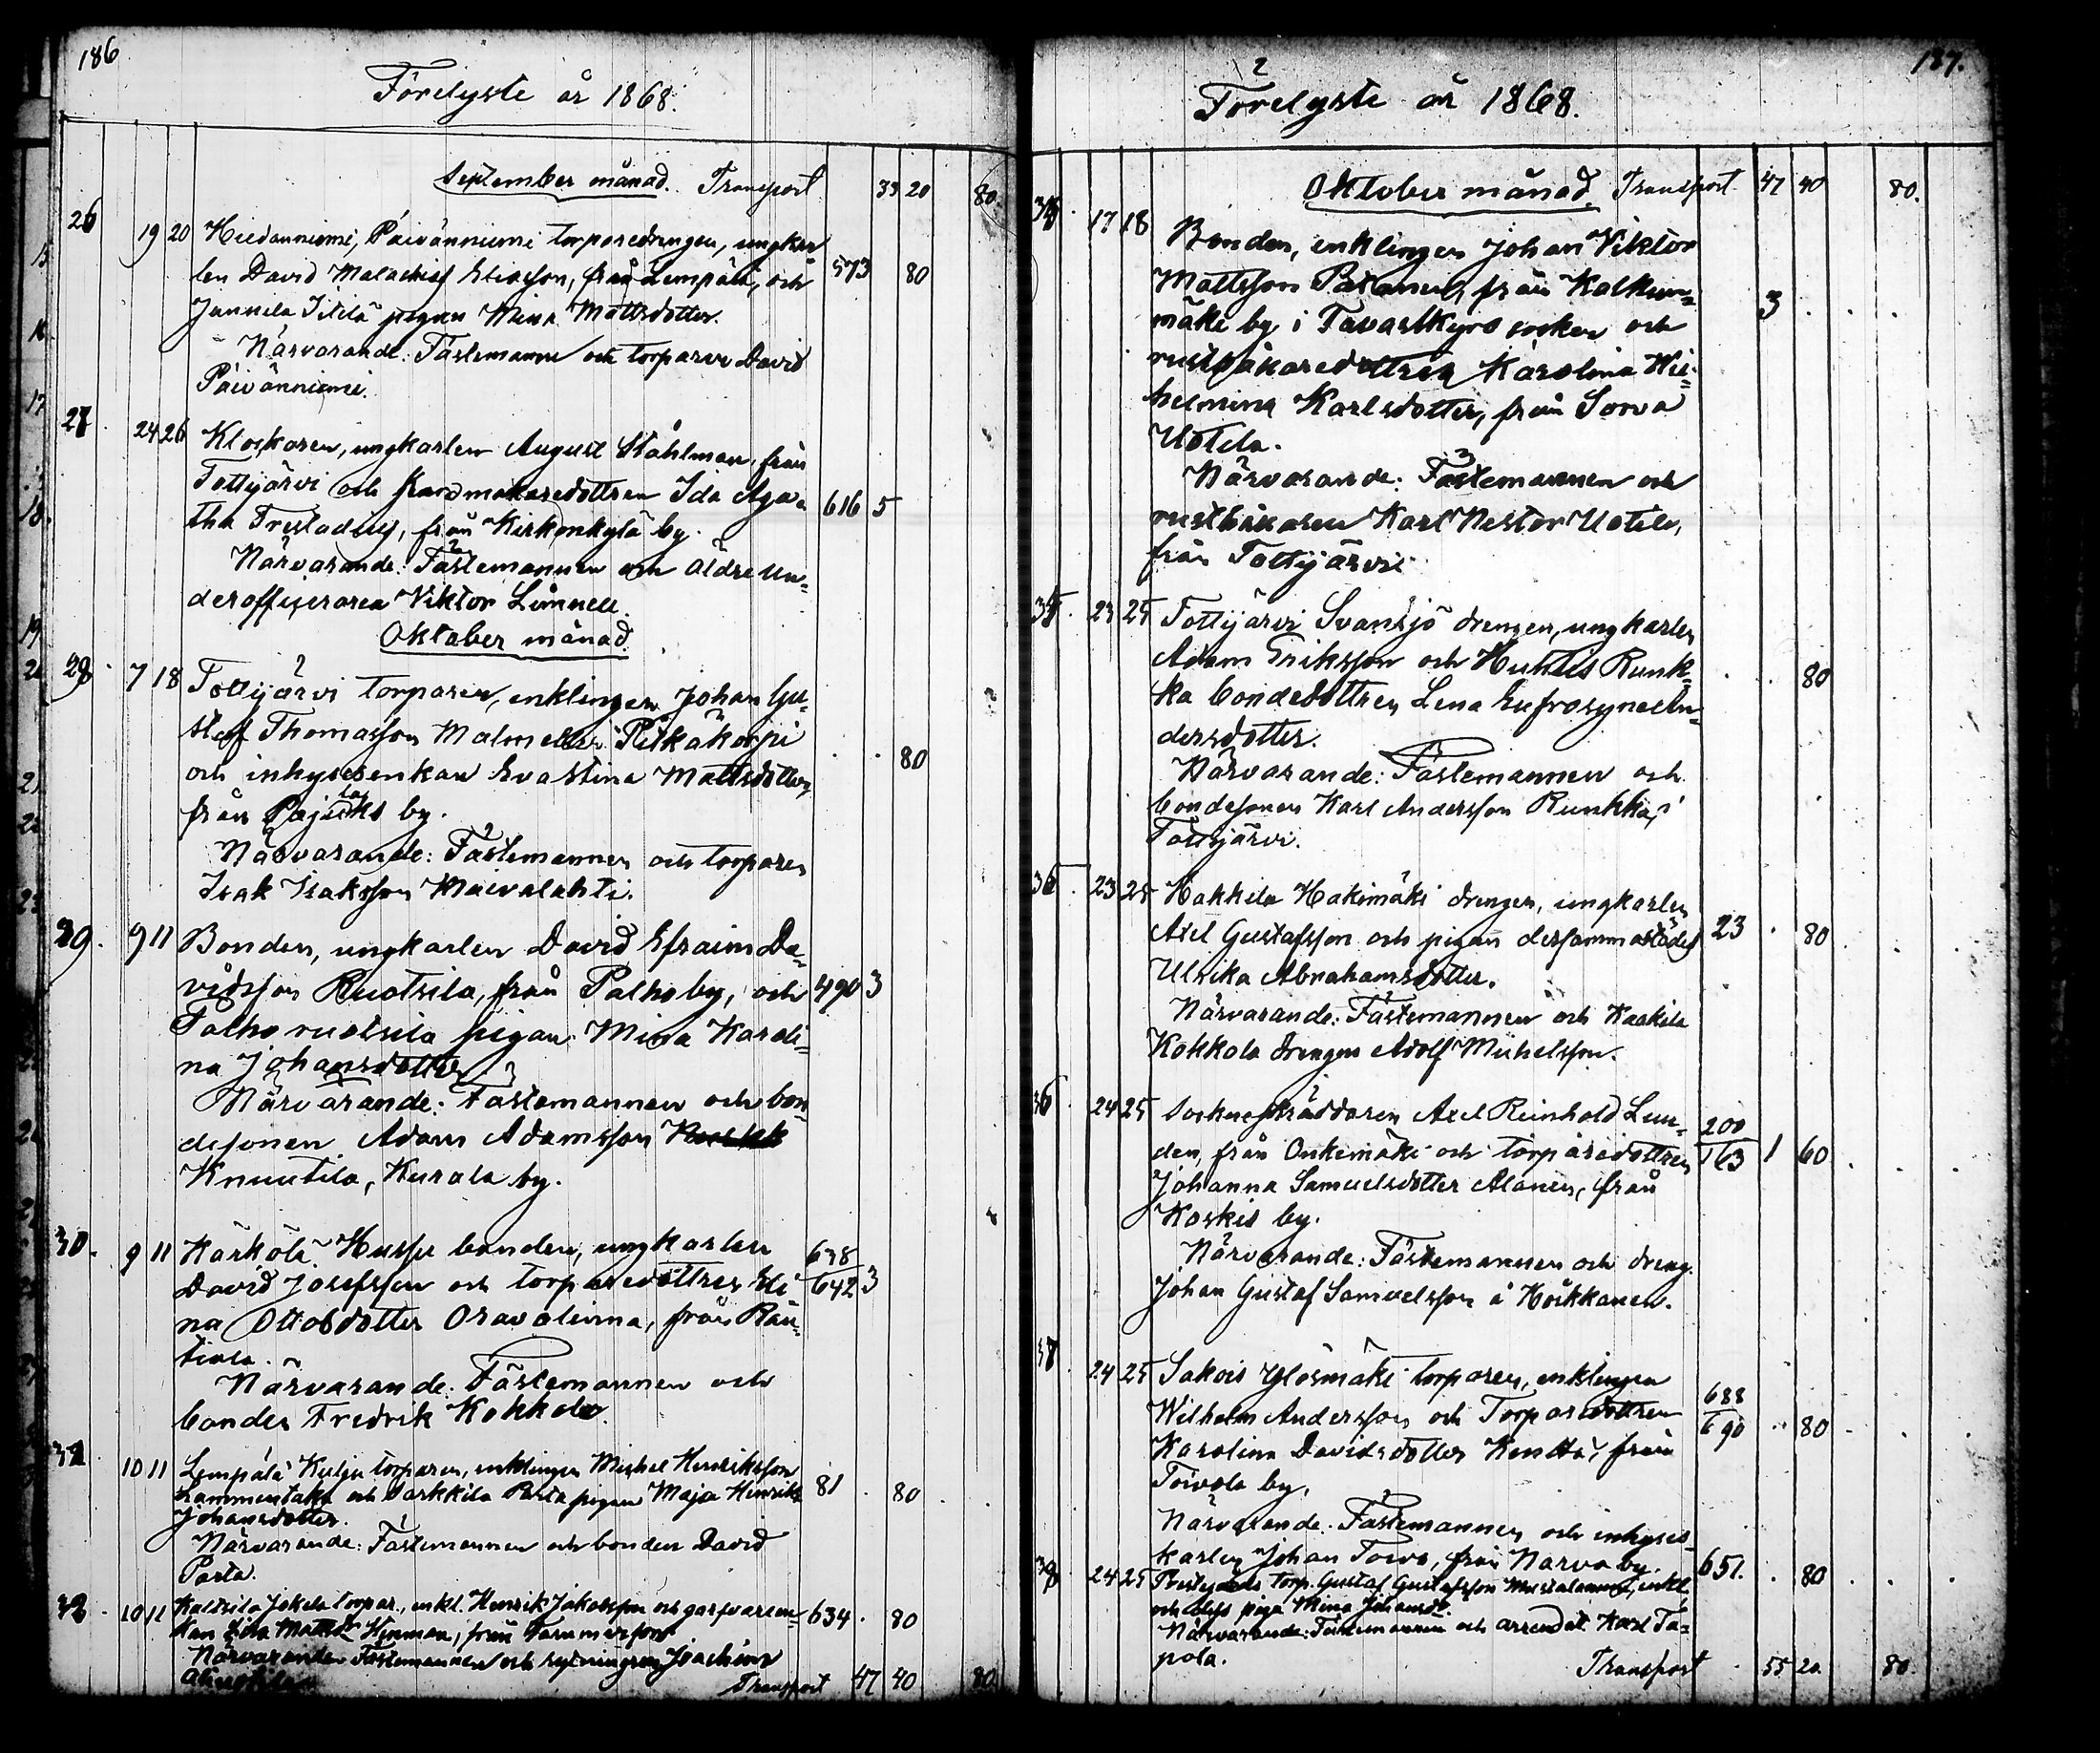 186
Förelyste år 1868.
September månad. Transport 33 20 80.
26 19 20 Hiedanniemi, Päivänniemi torparedrengen, ungkar
len David Malachias Eliasson, från Lempälä, och 573 80
Junnila Itilä pigan Miina Mattsdotter.
Närvarande: Fästemannen och torparen David
Päivänniemi.
27 24 26 Klockaren, ungkarlen August Ståhlman, från
Tottijärvi och dottren Ida Aga= 616 5
tha från Kirkonkylä by.
Närvarande: Fästemannen och äldre un=
derofficeraren Viktor Limnell.
Oktober månad.
28 7 18 Tottijärvi torparen, enklingen Johan Gu=
staf Thomasson Malmelin Pitkäkorpi . . 80
och inhysesenkan Eva Stina Mattsdotter,
från by.
Närvarande: Fästemannen och torparen
Isak Isaksson Maivalahti.
29. 9 11 Bonden, ungkarlen David Efraim Da=
vidsson Ruotsila, från Palho by, och 490 3
Palho ruotsila pigan Mina Karoli=
na Johansdotter
Närvarande: Fästemannen och bon=
desonen Adam Adamsson
Knuutila, Kurala by.
30. 9 11 Kärkölä Hussu bonden, ungkarlen 638
David Josefsson och torparedottren Eli 642 3
na Ottosdotter Oravalinna, från Rau=
tiala.
Närvarande: Fästemannen och
bonden Fredrik Kokkola.
31 10 11 Lempälä Kulju torparen, enklingen Michel Henriksson
Lammentaka och Sarkkila Parta pigan Maja Henrika 81 . 80
Johansdotter.
Närvarande: Fästemannen och bonden David
Parta.
32 10 11 Kaltsila Jokela torpar., enkl. Henrik Jakobsson och 634 . 80
kan Lisa Mattsdr Hinman, från
Närvarande: Fästemannen och Joachim
Transport 47 40 80
187.
Förelyste år 1868.
Oktober månad. Transport 47 40 80.
34 17 18 Bonden, enklingen Johan Viktor
Mattsson från Kalkun= 3 . . .
mäki by i Tavastkyro socken och
rusthållaredottren Karolina Wil=
helmina Karlsdotter, från Sorva
Uotila.
Närvarande: Fästemannen och
rusthållaren Karl Nestor Uotila,
från Tottijärvi.
35 23 25 Tottijärvi Svansjö drengen, ungkarlen
Adam Eriksson och Huhtis Runk= . . 80
ka bondedottren Lena Eufrosyne An=
dersdotter.
Närvarande: Fästemannen och
bondesonen Karl Andersson Runkka, i
Tottijärvi.
36 23 25 Hakkila Hakimäki drengen, ungkarlen
Axel Gustafsson och pigan dersammastädes 23 . 80
Ulrika Abrahamsdotter.
Närvarande: Fästemannen och Haakila
Kokkola drengen Adolf Michelsson.
24 25 Sockneskräddaren Axel Reinhold Lin= 200
den, från Onkemäki och torparedottren 163 1 60
Johanna Samuelsdotter Alanen, från
Koskis by.
Närvarande: Fästemannen och dreng.
Johan Gustaf Samuelsson å Hörkkanen.
37 24 25 Sakois Ylösmäki torparen, enklingen 688
Wilhelm Andersson och Torparedottren 690 . . 80
Karolina Davidsdotter Kenttä, från
Toivola by.
Närvarande: Fästemannen och inhyses=
karlen Johan Toivo, från Narva by.
38 24 25 Prestgårds torp. Gustaf Gustafsson enkl. 651. . 80
och dess piga Mina Johansdr
Närvarande: Fästemannen och arrendat. Karl Ta=
pola.
Transport 55 20 80.